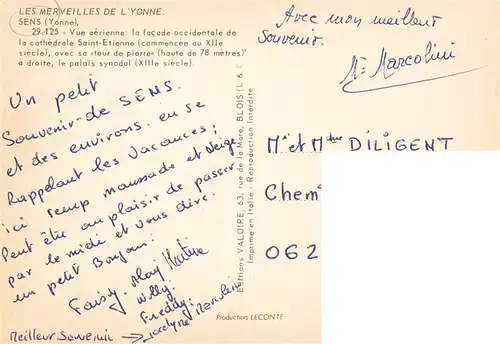 LES MERVEILLES DE L'YONNE.
SENS (Yonne).
29.125 - Vue aérienne: la façade occidentale de
la cathédrale Saint-Etienne (commencée au XIIe
siècle), avec sa «tour de pierre» (haute de 78 mètres)
à droite, le palais synodal (XIIIe siècle).
Un petit
Souvenir de SENS.
et des environs. en se
Rappelant les Vacances;
ici temp maussade et Neige
Peut être au plaisir de passer
par le midi et vous dire.
un petit Bonjour:
Willy.
Freddy.
Jocelyne Marcolini
Meilleur Souvenir
Editions VALOIRE, 63, rue de la Mare, BLOIS (L. & C.)
Imprimé en Italie - Reproduction Interdite
Production LECONTE
Avec mon meilleur
Souvenir.
Marcolini
Mr et Mme DILIGENT
Chem
062